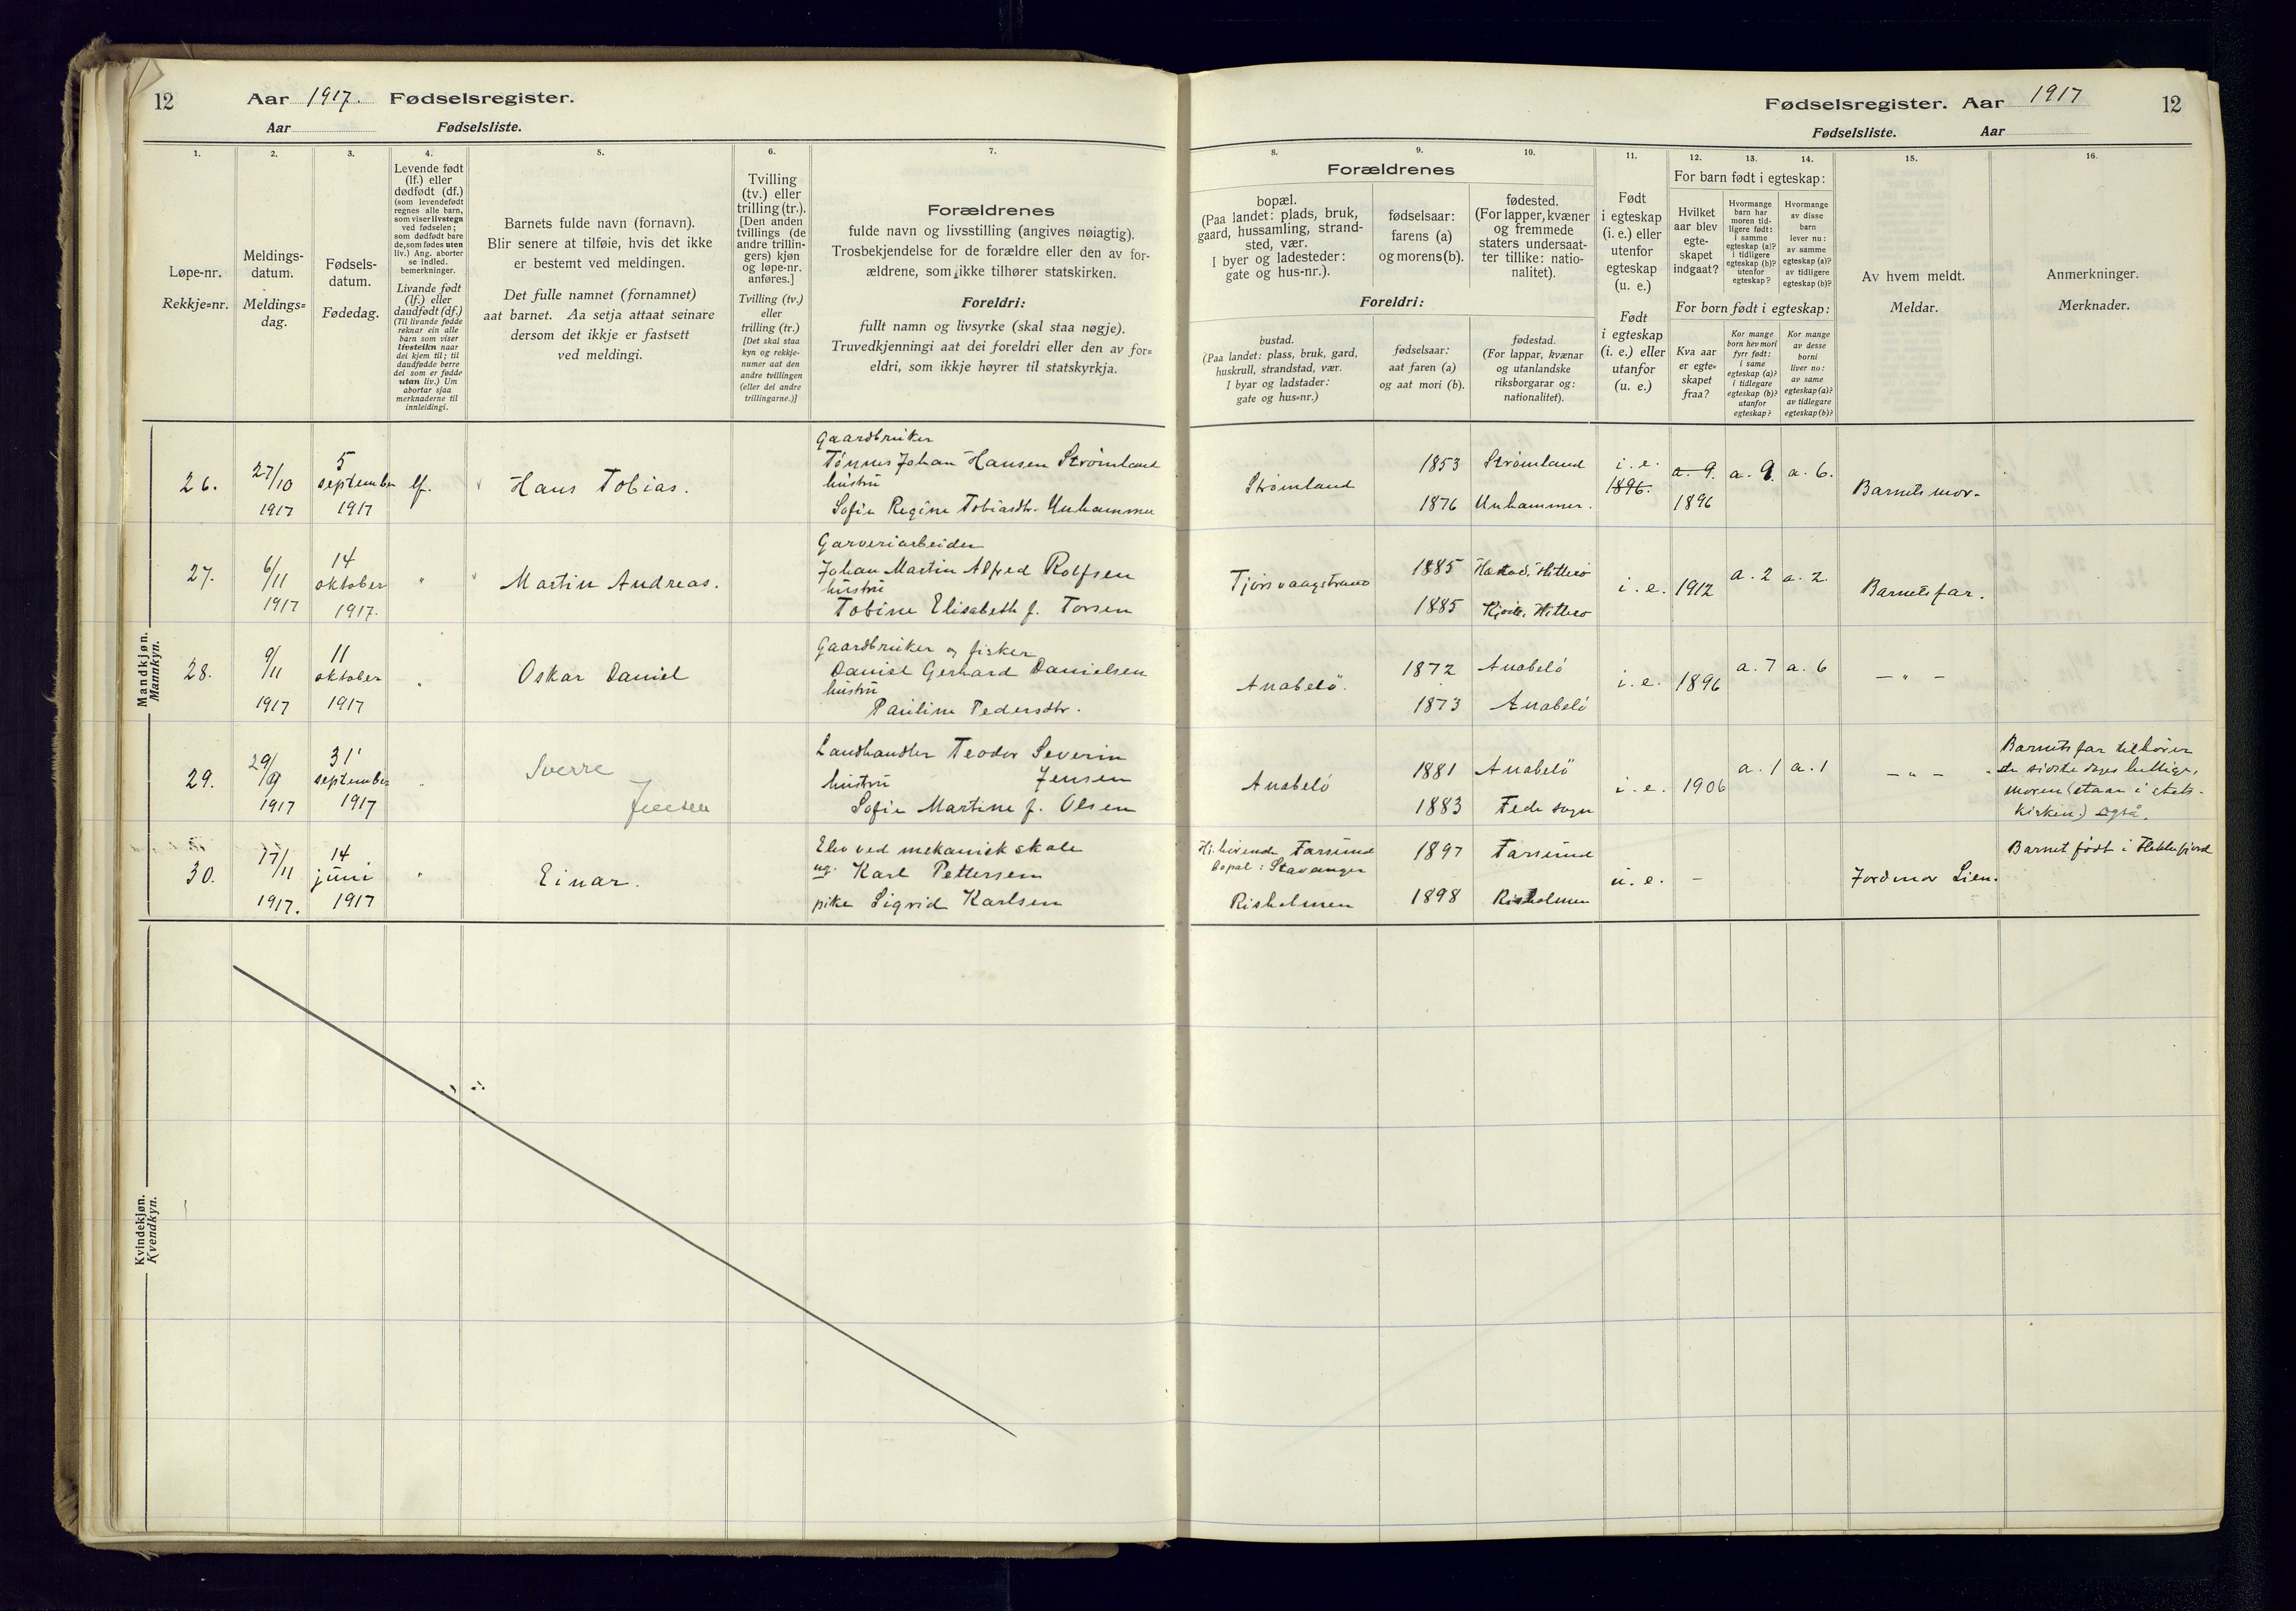 12
Aar 1917. Fødselsregister.
Aar Fødselsliste.
1.
2.
3.
4.
5.
6.
7.
Løpe-nr.
Rekkje=nr.
Meldings-
datum.
Meldings=
dag.
Fødsels-
datum.
Fødedag.
Levende født
(lf.) eller
dødfødt (df.)
(som levendefødt
regnes alle barn,
som viser livstegn
ved fødselen;
som dødfødt bare
de, som fødes uten
liv.) Ang. aborter
se indled.
bemerkninger.
Livande født
(lf.) eller
daudfødt (df.)
(Til livande fødde
reknar ein alle
barn som viser
livsteikn naar
dei kjem til; til
daudfødde berre
dei som er fødde
utan liv.) Um
abortar sjaa
merknaderne til
innleidingi.
Barnets fulde navn (fornavn).
Blir senere at tilføie, hvis det ikke
er bestemt ved meldingen.
Det fulle namnet (fornamnet)
aat barnet. Aa setja attaat seinare
dersom det ikkje er fastsett
ved meldingi.
Tvilling
(tv.) eller
trilling (tr.).
[Den anden
tvillings (de
andre trillin-
gers) kjøn
og løpe-nr.
anføres.]
Tvilling (tv.)
eller
trilling (tr.)
[Det skal staa
kyn og rekkje-
numer aat den
andre tvillingen
(eller dei andre
trillingarne.)]
Forældrenes
fulde navn og livsstilling (angives nøiagtig).
Trosbekjendelse for de forældre eller den av for-
ældrene, som ikke tilhører statskirken.
Foreldri:
fullt namn og livsyrke (skal staa nøgje).
Truvedkjenningi aat dei foreldri eller den av for=
eldri, som ikkje høyrer til statskyrkja.
Mandkjøn.
Mannkyn.
26.
27/10
1917
5
september
1917
lf.
Hans Tobias.
Gaardbruker
Tønnes Johan Hansen Strømland
hustru
Sofie Regine Tobiasdtr. Unhammer
27.
6/11
1917
14
oktober
1917.
"
Martin Andreas.
Garveriarbeider
Johan Martin Alfred Rolfsen
hustru
Tobine Elisabeth f. Torsen
28.
9/11
1917
11
oktober
1917
"
Oskar Daniel
Gaardbruker og fisker
Daniel Gerhard Danielsen
hustru
Pauline Pedersdtr.
29.
29/9
1917
31
september
1917
"
Sverre
Jensen
Landhandler Teodor Severin
hustru Jensen
Sofie Martine f. Olsen
30.
17/11
1917.
14
juni
1917
"
Einar.
Elev ved mekanisk skole
ug. Karl Pettersen
pike Sigrid Karlsen
Kvindekjøn.
Kvendkyn.
Fødselsregister. Aar 1917
12
Fødselsliste. Aar
8.
9.
10.
11.
12.
13.
14.
15.
16.
Forældrenes
bopæl.
(Paa landet: plads, bruk,
gaard, hussamling, strand-
sted, vær.
I byer og ladesteder:
gate og hus-nr.).
fødselsaar:
farens (a)
og morens (b).
fødested.
(For lapper, kvæner
og fremmede
staters undersaat-
ter tillike: natio-
nalitet).
Foreldri:
bustad.
(Paa landet: plass, bruk, gard,
huskrull, strandstad, vær.
I byar og ladstader:
gate og hus=nr.)
fødselsaar:
aat faren (a)
og aat mori (b).
fødestad.
(For lappar, kvænar
og utanlandske
riksborgarar og:
nationalitet).
Født
i egteskap
(i. e.) eller
utenfor
egteskap
(u. e.)
Født
i egteskap
(i. e.) eller
utanfor
(u. e.)
For barn født i egteskap:
Hvilket
aar blev
egte-
skapet
indgaat?
Hvormange
barn har
moren tid-
ligere født:
i samme
egteskap (a)?
i tidligere
egteskap (b)?
utenfor
egteskap?
Hvormange
av disse
barn
lever nu:
av samme
egteskap (a)?
av tidligere
egteskap (b)?
For born født i egteskap:
Kva aar
er egte=
skapet
fraa?
Kor mange
born hev mori
fyrr født:
i same
egteskap (a)?
i tidlegare
egteskap (b)?
utanfor
egteskap?
Kor mange
av desse
borni
liver no:
av same
egteskap (a)?
av tidlegare
egteskap (b)?
Av hvem meldt.
Meldar.
Anmerkninger.
Merknader.
Strømland
1853
1876
Strømland
Unhammer.
i. e.
1896.
a. 9.
1896
a. 9.
a. 6.
Barnets mor.
Tjorsvaagstrand
1885
1885
Hitterø
Hitterø
i. e.
1912
a. 2
a. 2.
Barnets far.
Anabelø.
1872
1873
Anabelø
Anabelø
i. e.
1896
a. 7
a. 6
— " —
Anabelø
1881
1883
Anabelø
Fede sogn
i. e.
1906
a. 1
a. 1
— " —
Barnets far tilhører
de sidste dages hellige,
moren (staar i stats-
kirken) også.
Farsund
bopæl: Stavanger
Risholmen
1897
1898
Farsund
Risholmen
u. e.
–
Jordmor Lien.
Barnet født i Flekkefjord